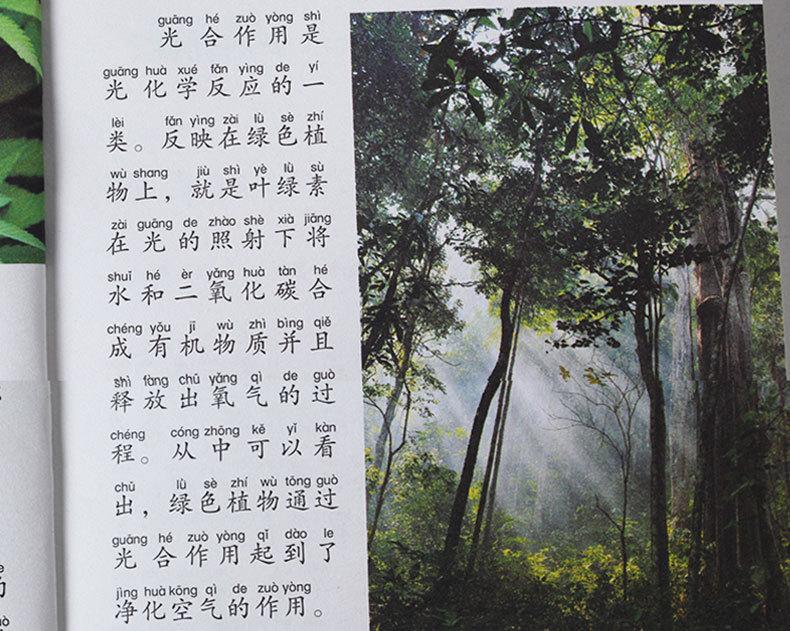 guāng hé zuò yòng shì
光合作用是
guāng huà xué fǎn yìng de yí
光化学反应的一
lèi fǎn yìng zài lǜ sè zhí
类。反映在绿色植
wù shang jiù shì yè lǜ sù
物上，就是叶绿素
zài guāng de zhào shè xià jiāng
在光的照射下将
shuǐ hé èr yǎng huà tàn hé
水和二氧化碳合
chéng yǒu jī wù zhì bìng qiě
成有机物质并且
shì fàng chū yǎng qì de guò
释放出氧气的过
chéng cóng zhōng kě yǐ kàn
程。从中可以看
chū lǜ sè zhí wù tōng guò
出，绿色植物通过
guāng hé zuò yòng qǐ dào le
光合作用起到了
jìng huà kōng qì de zuò yòng
净化空气的作用。